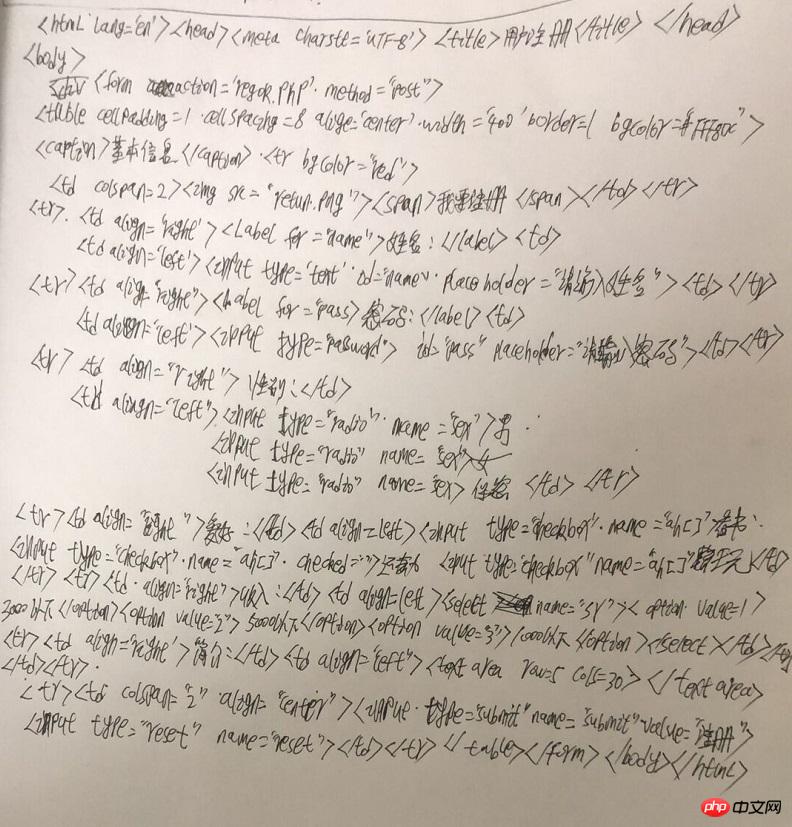 <html lang='en'><head><meta charstt='UTF-8'> <title>用户注册</title> </head>
<body>
<div <form action='regok.php' method="post">
<table cellpadding=1 cellspacing=8 alige='center' width="400' border=1 bgcolor="#fff80c">
<caption>基本信息</caption> <tr bgcolor="red">
<td colspan=2><img src="retun.png"><span>我要注册</span></td></tr>
<tr> <td align='right'><Label for="name">姓名:</label><td>
<td align='left'><input type='text' id="name" placeholder="请输入姓名"><td></tr>
<tr><td align="right"><label for="pass>密码:</label><td>
<td align='left'><input type="password"> id="pass" placeholder="请输入密码"></td></tr>
<tr> <td align="right">性别:</td>
<td align="left"><input type="radio" name="sex">男
<input type="radio" name="sex">女
<input type="radio" name="sex> 保密 </td> </tr>
<tr><td align="right">爱好:</td><td align=left><input type="checkbox" name="ah[]">看书
<input type="checkbox" name="ah[]" checked="">运动 <input type="checkbox" name="ah[]"></td>
</tr><tr><td align="right">收入:</td><td align=left><select name="sr"><option value=1>
3000以下</option><option value="2">5000以下</option><option value="3">10000以下</option></select></td></tr>
<tr><td align="right">简介:</td><td align="left"><text area row=5 cols=30></text area>
</td></tr>
<tr><td colspan="2" align="center"><input type="submit" name="submit" value="注册">
<input type="reset" name="reset"></td></tr></table></form></body></html>
php 中文网